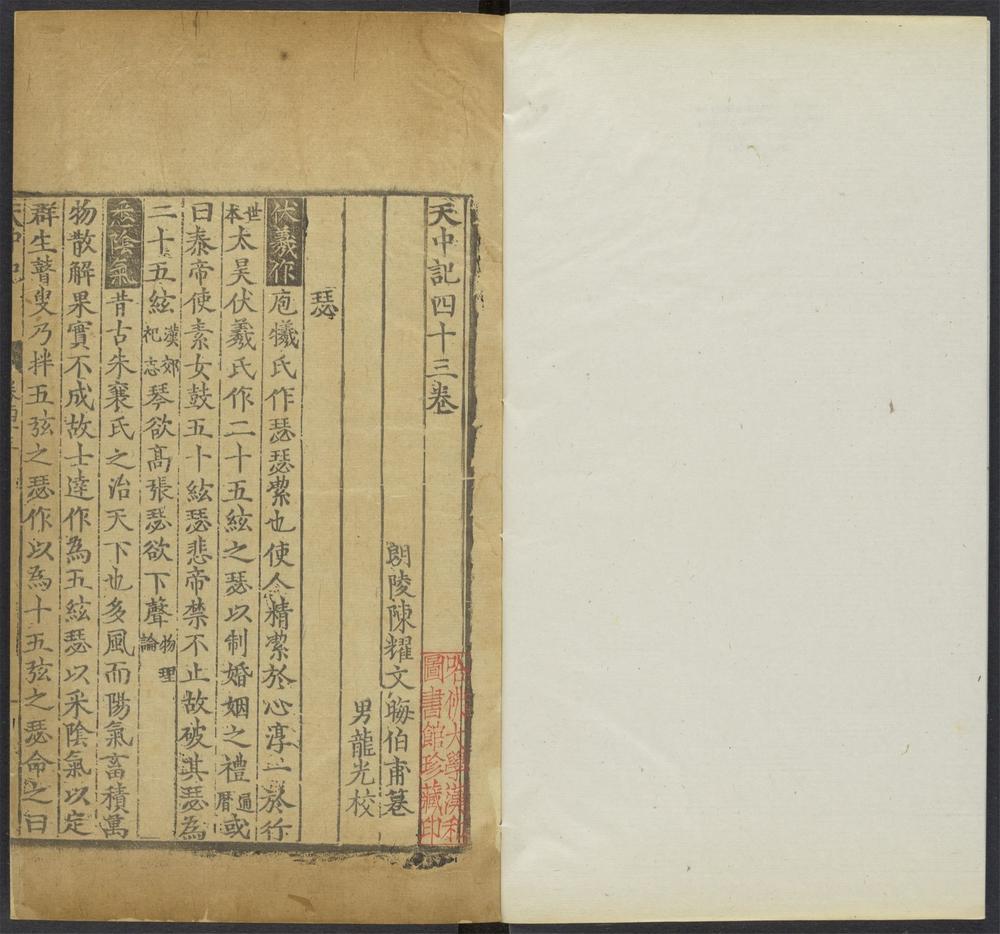 天中記四十三卷
朗陵陳耀文晦伯甫纂
男龍光校
瑟
伏羲作庖犧氏作瑟瑟潔也使人精潔於心淳一於行
世本太昊伏羲氏作二十五絃之瑟以制婚姻之禮通曆或
曰泰帝使素女鼓五十絃瑟悲帝禁不止故破其瑟為
二十五絃漢郊祀志琴欲高張瑟欲下聲物理論
惡陰氣昔古朱襄氏之治天下也多風而陽氣畜積萬
物散解果實不成故士達作為五絃瑟以采陰氣以定
群生瞽叟乃拌五弦之瑟作以為十五弦之瑟命之曰
哈佛大學漢和
圖書館珍藏印